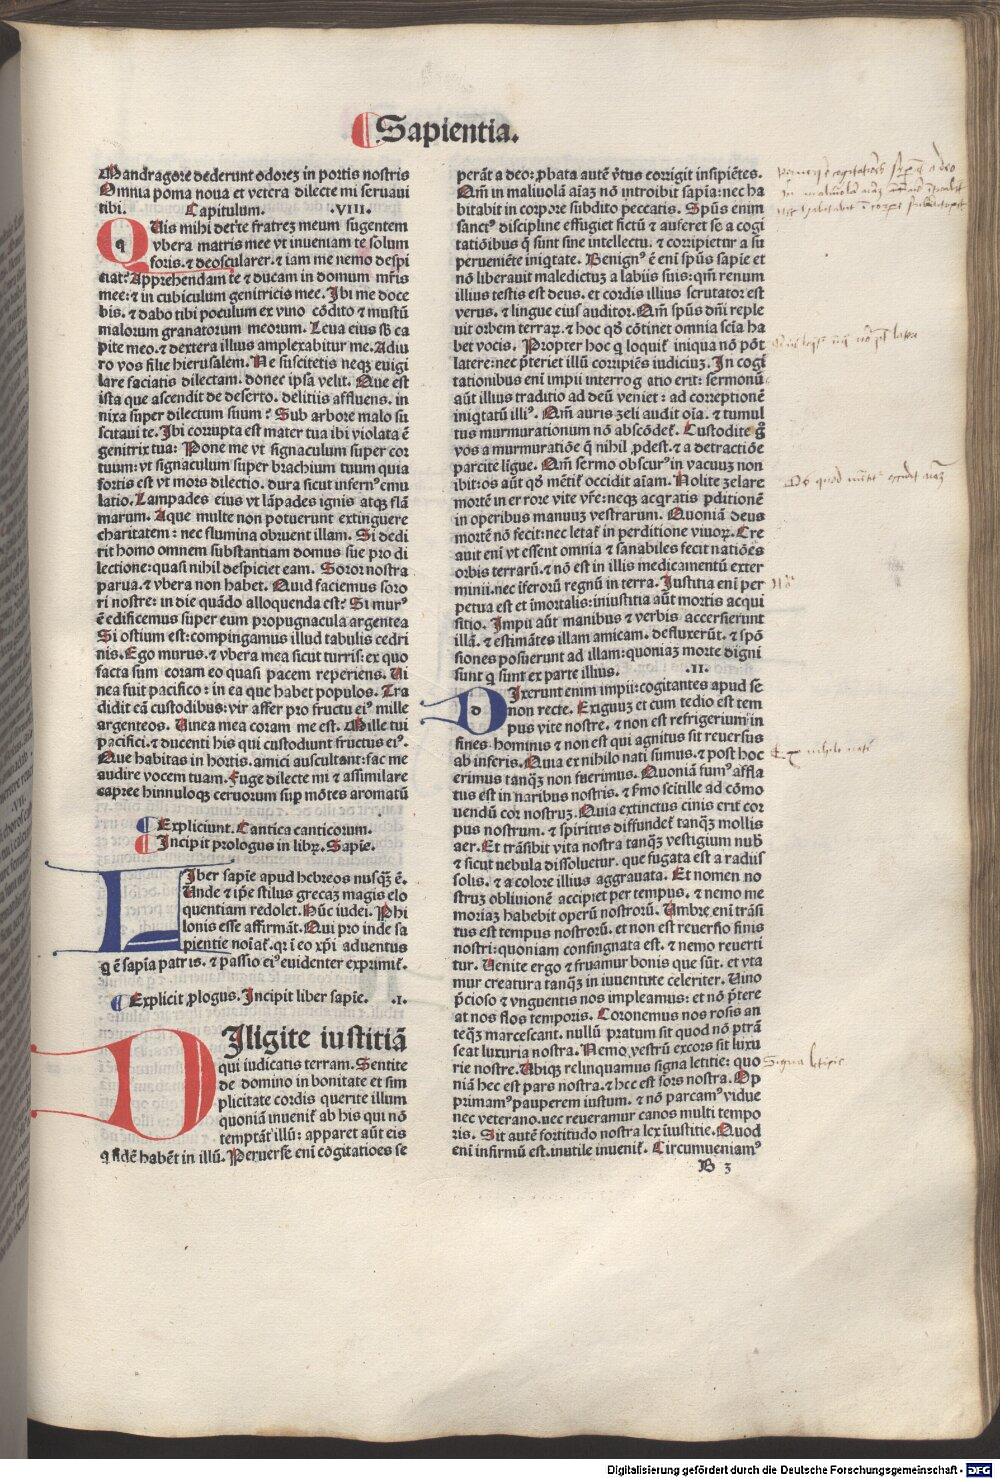 Sapientia.
Mandragore dederunt odorez in portis nostris
Omnia poma noua et vetera dilecte mi seruaui
tibi. Capitulum. .VIII.
QUis mihi det te fratrez meum sugentem
vbera matris mee vt inueniam te solum
foris. ⁊ deoscularer. ⁊ iam me nemo despi
ciat? Apprehendam te ⁊ ducam in domum mr̃is
mee: ⁊ in cubiculum genitricis mee. Ibi me doce
bis. ⁊ dabo tibi poculum ex vino cōdito ⁊ mustū
malorum granatorum meorum. Leua eius sb̃ ca
pite meo. ⁊ dextera illius amplexabitur me. Adiu
ro vos filie hierusalem. Ne suscitetis neqʒ euigi
lare faciatis dilectam. donec ipsa velit. Que est
ista que ascendit de deserto. delitiis affluens. in
nixa super dilectum suum? Sub arbore malo su
scitaui te. Ibi corrupta est mater tua ibi violata ē
genitrix tua: Pone me vt signaculum super cor
tuum: vt signaculum super brachium tuum quia
fortis est vt mors dilectio. dura sicut infernꝰ emu
latio. Lampades eius vt lāpades ignis atqʒ flā
marum. Aque multe non potuerunt extinguere
charitatem: nec flumina obruent illam. Si dedi
rit homo omnem substantiam domus sue pro di
lectione: quasi nihil despiciet eam. Soror nostra
parua. ⁊ vbera non habet. Quid faciemus soro
ri nostre: in die quādo alloquenda est? Si murꝰ
ē edificemus super eum propugnacula argentea
Si ostium est: compingamus illud tabulis cedri
nis. Ego murus. ⁊ vbera mea sicut turris: ex quo
facta sum coram eo quasi pacem reperiens. Ui
nea fuit pacifico: in ea que habet populos. Tra
didit eā custodibus: vir affer pro fructu eiꝰ mille
argenteos. Uinea mea coram me est. Mille tui
pacifici. ⁊ ducenti his qui custodiunt fructus eiꝰ.
Que habitas in hortis. amici auscultant: fac me
audire vocem tuam. Fuge dilecte mi ⁊ assimilare
capree hinnuloqʒ ceruorum sup mōtes aromatū
Expliciunt. Cantica canticorum.
Incipit prologus in libꝝ. Sapie.
LIber sapie apud hebreos nusqʒ ē.
Unde ⁊ ip̃e stilus grecaʒ magis elo
quentiam redolet. Hūc iudei. Phi
lonis esse affirmāt. Qui pro inde sa
pientie noīat᷑. qꝛ ī eo xp̄i aduentus
q̄ ē sapīa patris. ⁊ passio eiꝰ euidenter exprimit᷑.
Explicit ꝓlogus. Incipit liber sapie. .I.
DIligite iustitiā
qui iudicatis terram. Sentite
de domino in bonitate et sim
plicitate cordis querite illum
quoniā inuenit᷑ ab his qui nō
temptāt illū: apparet aūt eis
q̄ fidē habēt in illū. Peruerse enī cogitatioēs se
perāt a deo: ꝓbata autē v̄tus corrigit insipiētes.
Qm̄ in maliuolā aīaʒ nō introibit sapīa: nec ha
bitabit in corpore subdito peccatis. Spūs enim
sanctꝰ discipline effugiet fictū ⁊ auferet se a cogi
tatiōibus q̄ sunt sine intellectu. ⁊ corripietur a su
perueniēte iniqtate. Benignꝰ ē enī spūs sapie et
nō liberauit maledictuʒ a labiis suis: qm̄ renum
illius testis est deus. et cordis illius scrutator est
verus. ⁊ lingue eius auditor. Qm̄ spūs dn̄i reple
uit orbem terraꝝ. ⁊ hoc qð cōtinet omnia scīa ha
bet vocis. Propter hoc q̄ loquit᷑ iniqua nō pōt
latere: nec p̄teriet illū corripiēs iudiciuʒ. In cogi
tationibus enī impii interrogatio erit: sermonū
aūt illius traditio ad deū veniet: ad correptionē
iniqtatū illiꝰ. Qm̄ auris zeli audit oīa. ⁊ tumul
tus murmurationum nō abscōdet᷑. Custodite g̊
vos a murmuratiōe q̄ nihil ꝓdest. ⁊ a detractiōe
parcite ligue. Qm̄ sermo obscurꝰ in vacuuʒ non
ibit: os aūt qð mētit᷑ occidit aīam. Nolite zelare
mortē in errore vite vr̄e: neqʒ acqratis ꝑditionē
in operibus manuuʒ vestrarum. Quoniā deus
mortē nō fecit: nec letat᷑ in perditione viuoꝝ. Cre
auit enī vt essent omnia ⁊ sanabiles fecit natiōes
orbis terrarū. ⁊ nō est in illis medicamentū exter
minii. nec īferorū regnū in terra. Iustitia enī per
petua est et īmortalis: iniustitia aūt mortis acqui
sitio. Impii aūt manibus ⁊ verbis accersierunt
illā. ⁊ estimātes illam amicam. defluxerūt. ⁊ spō
siones posuerunt ad illam: quoniaʒ morte digni
sunt q̄ sunt ex parte illius. .II.
DIxerunt enim impii: cogitantes apud se
non recte. Exiguuʒ et cum tedio est tem
pus vite nostre. ⁊ non est refrigerium in
fines hominis ⁊ non est qui agnitus sit reuersus
ab inferis. Quia ex nihilo nati sumus. ⁊ post hoc
erimus tanqʒ non fuerimus. Quoniā fumꝰ affla
tus est in naribus nostris. ⁊ s̄mo scitille ad cōmo
uendū cor nostruʒ. Quia extinctus cinis erit cor
pus nostrum. ⁊ spiritus diffundet᷑ tanqʒ mollis
aer. Et trāsibit vita nostra tanqʒ vestigium nub̄
⁊ sicut nebula dissoluetur. que fugata est a radiis
solis. ⁊ a colore illius aggrauata. Et nomen no
struʒ obliuionē accipiet per tempus. ⁊ nemo me
moriaʒ habebit operū nostrorū. Umbre enī trāsi
tus est tempus nostrorū. et non est reuersio finis
nostri: quoniam consingnata est. ⁊ nemo reuerti
tur. Uenite ergo ⁊ fruamur bonis que sūt. et vta
mur creatura tanqʒ in iuuentute celeriter. Uino
p̄cioso ⁊ vnguentis nos impleamus: et nō p̄tere
at nos flos temporis. Coronemus nos rosis an
teqʒ marcescant. nullū pratum sit quod nō ptrā
seat luxuria nostra. Nemo vestrū excors sit luxu
rie nostre. Ubiqʒ relinquamus signa letitie: quo
niā hec est pars nostra. ⁊ hec est sors nostra. Op
primamꝰ pauperem iustum. ⁊ nō parcamꝰ vidue
nec veterano. nec reueramur canos multi tempo
ris. Sit autē fortitudo nostra lex iustitie. Quod
enī infirmū est. inutile inuenit᷑. Circumueniamꝰ
B 3
Ex nihilo nati
Signa letitie
Digitalisierung gefördert durch die Deutsche Forschungsgemeinschaft - DFG